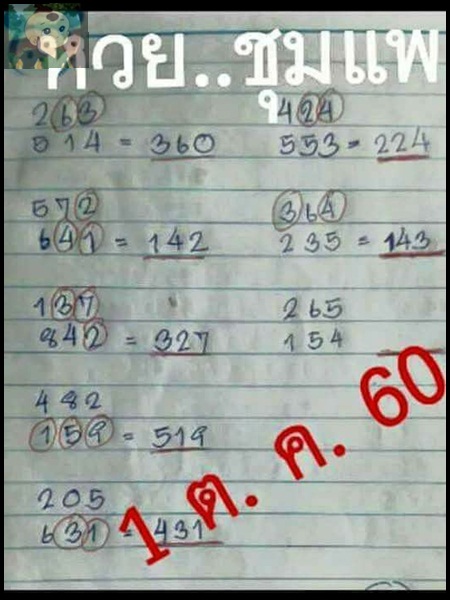 หวย..ชุมแพ
263
514 = 360
572
641 = 142
137
842 = 327
482
159 = 519
205
631 = 431
424
553 = 224
364
235 = 143
265
154
1 ต. ค. 60